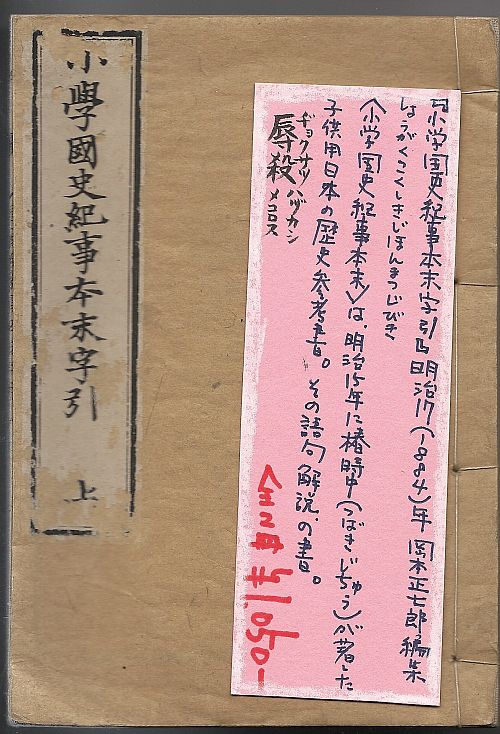 小學國史紀事本末字引 上
『小学国史紀事本末字引』明治17(1884)年 岡本正七郎編集
しょうがくこくしきじほんまつじびき
〈小学国史紀事本末〉は、明治15年に椿時中(つばきじちゅう)が著した
子供用日本の歴史参考書。その語句解説の書。
ヂョクサツ ハヅカシ
辱殺
メコロス
全2冊 ¥1,050-